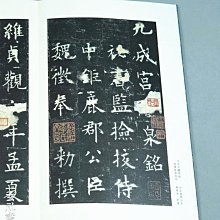 九成宮泉銘
祕書監撿挍侍
中鉅鹿郡公臣
魏徵奉勑撰
維貞觀年孟夏